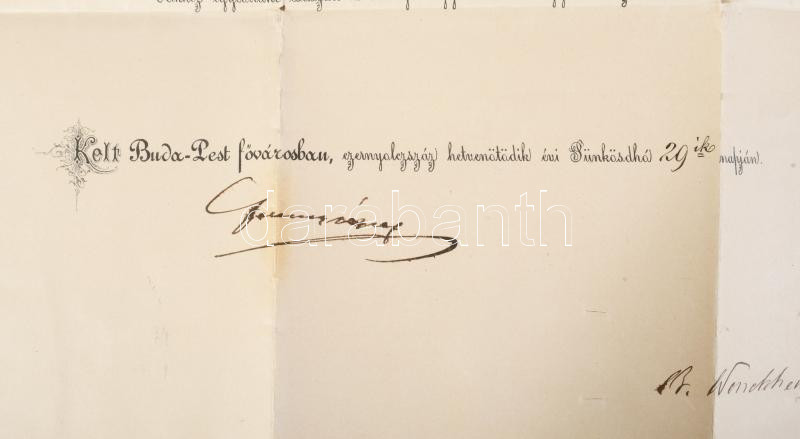 Kelt Buda-Pest fővárosban, ezernyolczszáz hetvenötödik évi Pünkösdhó 29 ik napján.
darabanth
B. Wenckhei